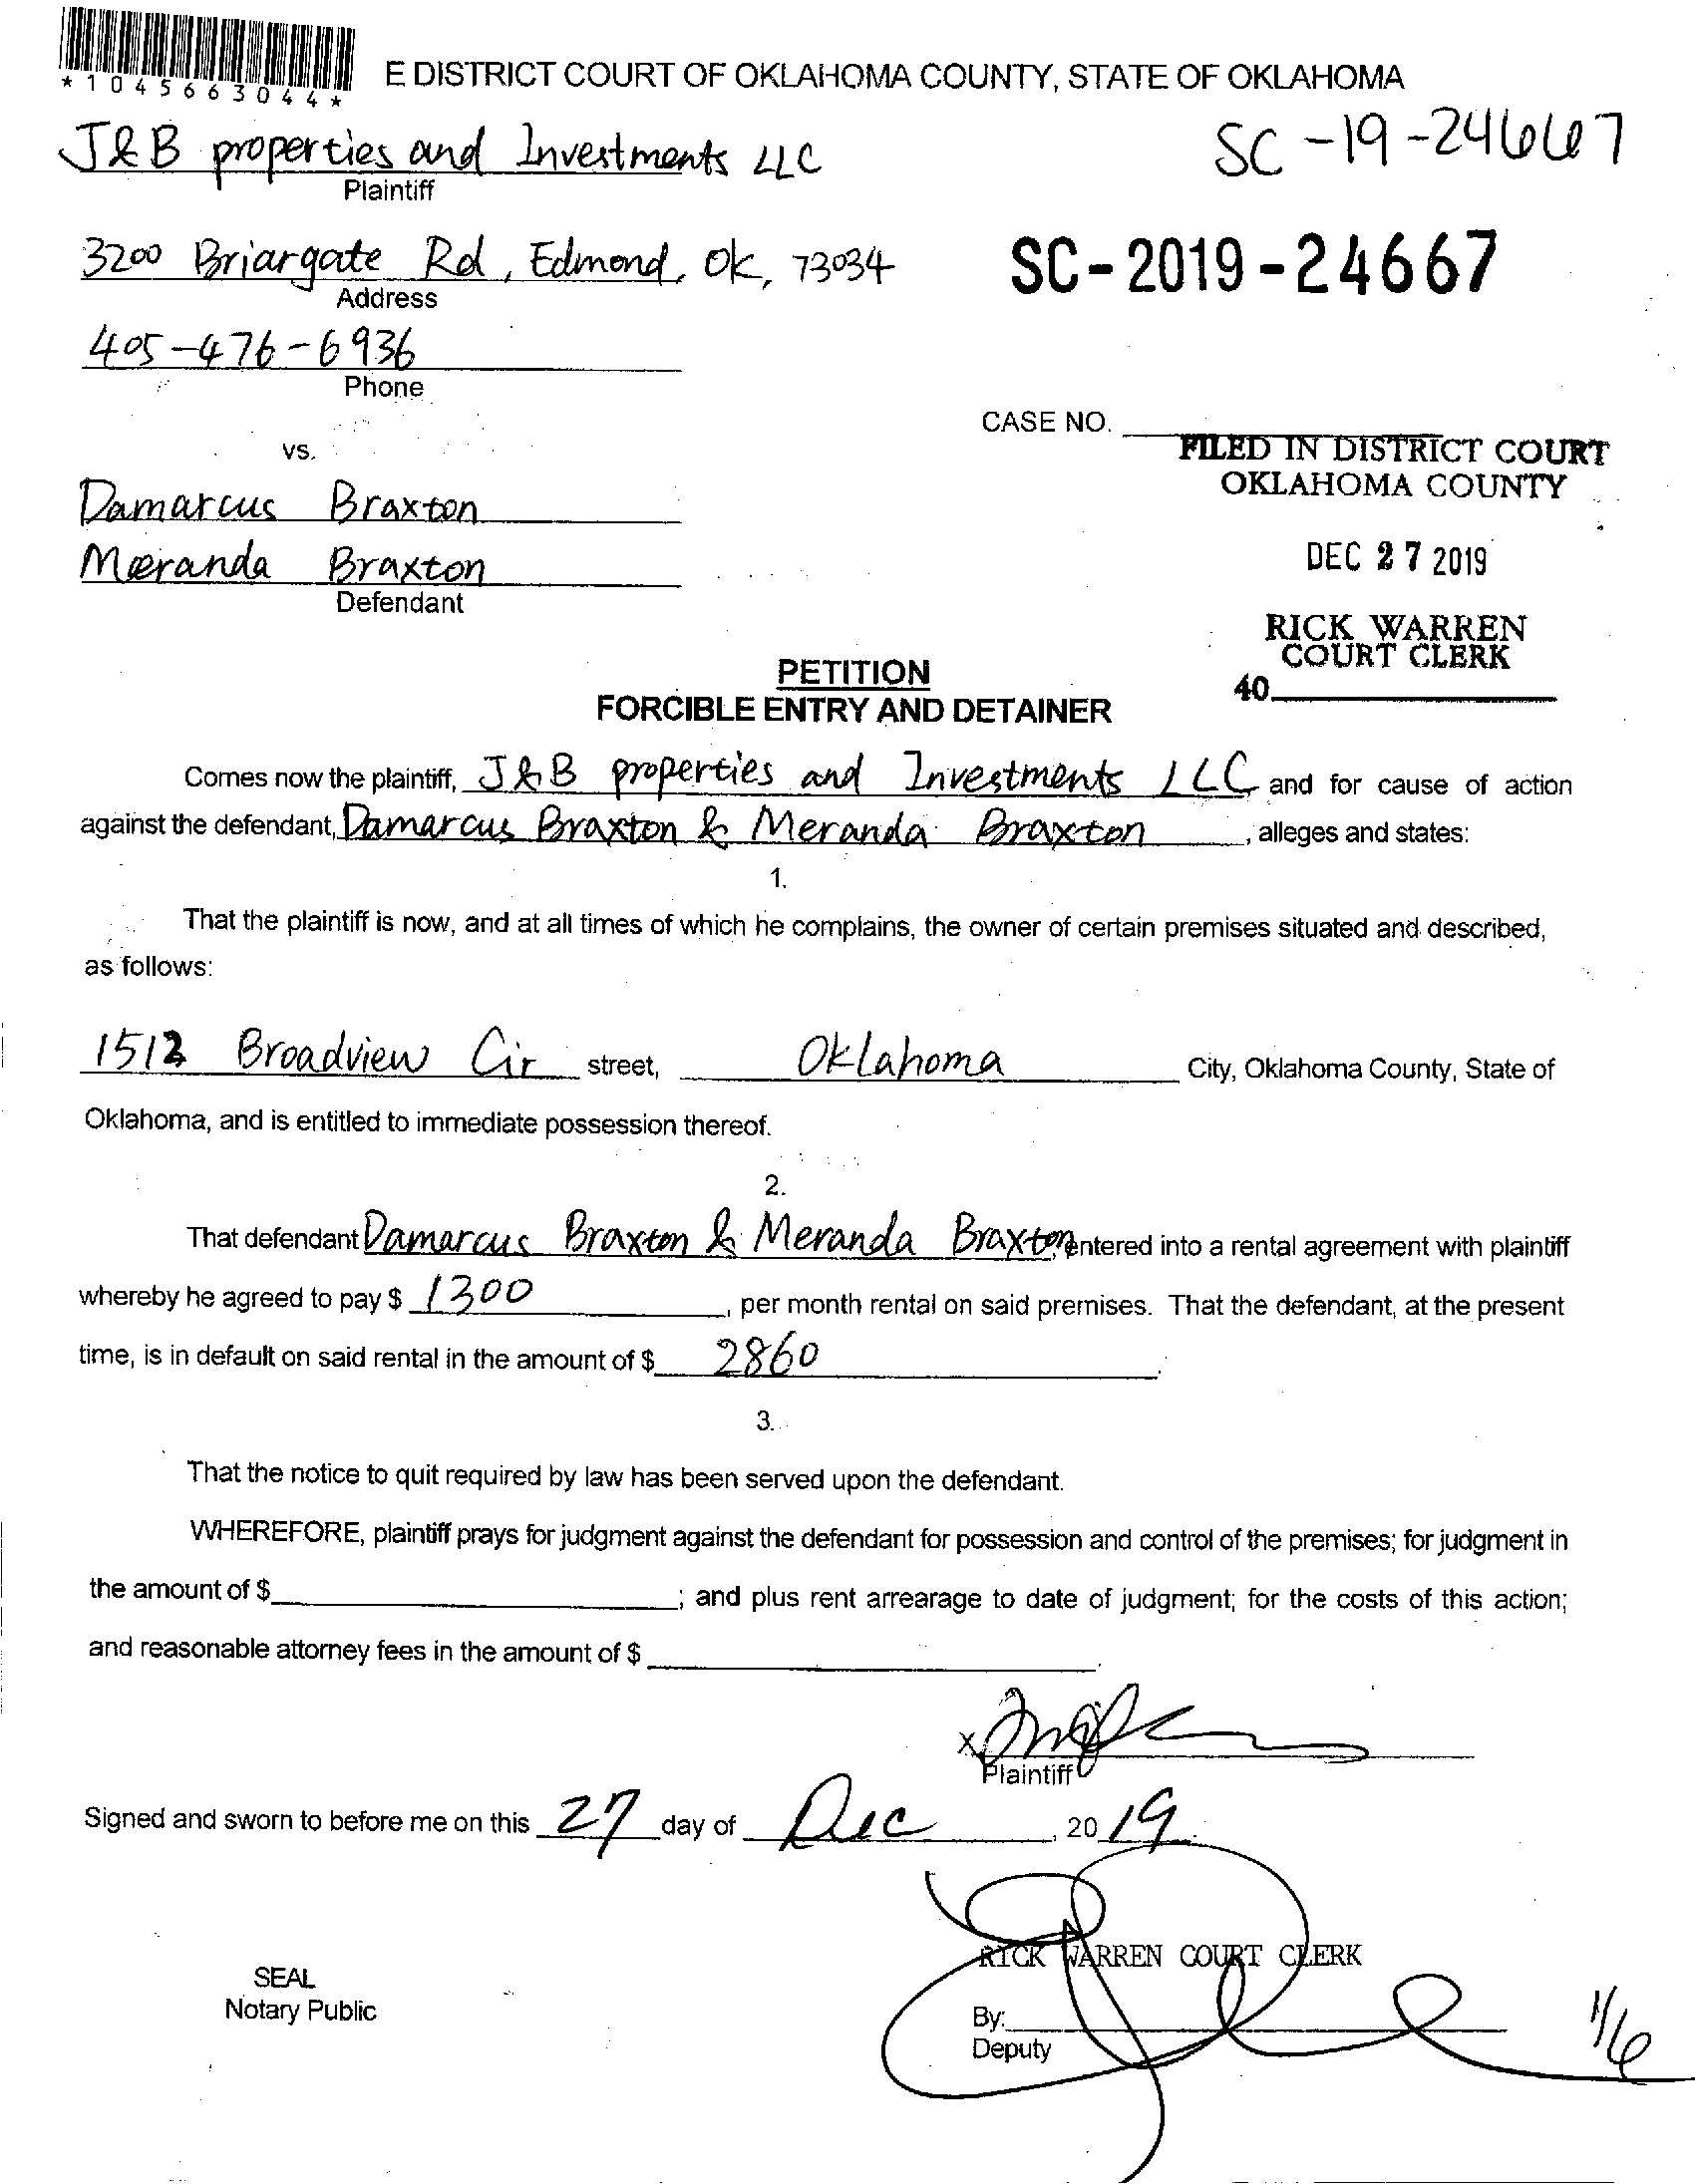 *1045663044*
E DISTRICT COURT OF OKLAHOMA COUNTY, STATE OF OKLAHOMA
J&B properties and Investments LLC
SC-19-24667
Plaintiff
3200 Briargate Rd, Edmond, OK, 73034
SC-2019-24667
Address
405-476-6936
Phone
CASE NO.
FILED IN DISTRICT COURT
OKLAHOMA COUNTY
vs.
Damarcus Braxton
DEC 27 2019
Meranda Braxton
Defendant
RICK WARREN
COURT CLERK
40
PETITION
FORCIBLE ENTRY AND DETAINER
Comes now the plaintiff, J&B properties and Investments LLC and for cause of action
against the defendant, Damarcus Braxton & Meranda Braxton, alleges and states:
1.
That the plaintiff is now, and at all times of which he complains, the owner of certain premises situated and described,
as follows:
1512 Broadview Cir street, Oklahoma City, Oklahoma County, State of
Oklahoma, and is entitled to immediate possession thereof.
2.
That defendant Damarcus Braxton & Meranda Braxton entered into a rental agreement with plaintiff
whereby he agreed to pay $ 1300, per month rental on said premises. That the defendant, at the present
time, is in default on said rental in the amount of $ 2860.
3.
That the notice to quit required by law has been served upon the defendant.
WHEREFORE, plaintiff prays for judgment against the defendant for possession and control of the premises; for judgment in
the amount of $ ; and plus rent arrearage to date of judgment; for the costs of this action;
and reasonable attorney fees in the amount of $ .
x
Plaintiff
Signed and sworn to before me on this 27 day of Dec, 2019.
RICK WARREN COURT CLERK
SEAL
Notary Public
By:
Deputy
1/6